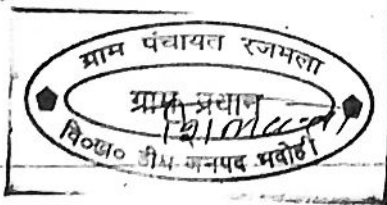 ग्राम पंचायत रजमला
ग्राम प्रधान
वि०ख० डीघ जनपद भदोही